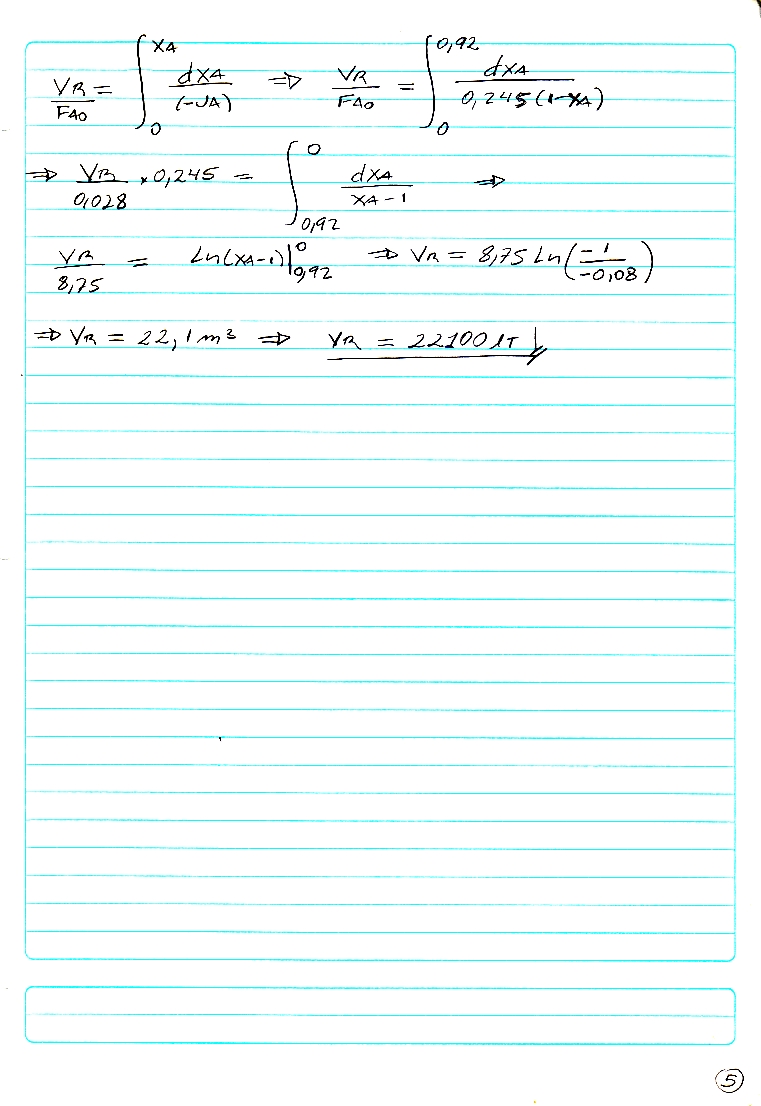 VR/FA0 = ∫₀^XA dXA/(-rA) ⇒ VR/FA0 = ∫₀^0,92 dXA/0,245(1-XA)
⇒ VR/0,028 × 0,245 = ∫_0,92^0 dXA/XA-1 ⇒
VR/8,75 = Ln(XA-1)|_0,92^0 ⇒ VR = 8,75 Ln(-1/-0,08)
⇒ VR = 22,1 m³ ⇒ VR = 22100 lT
5